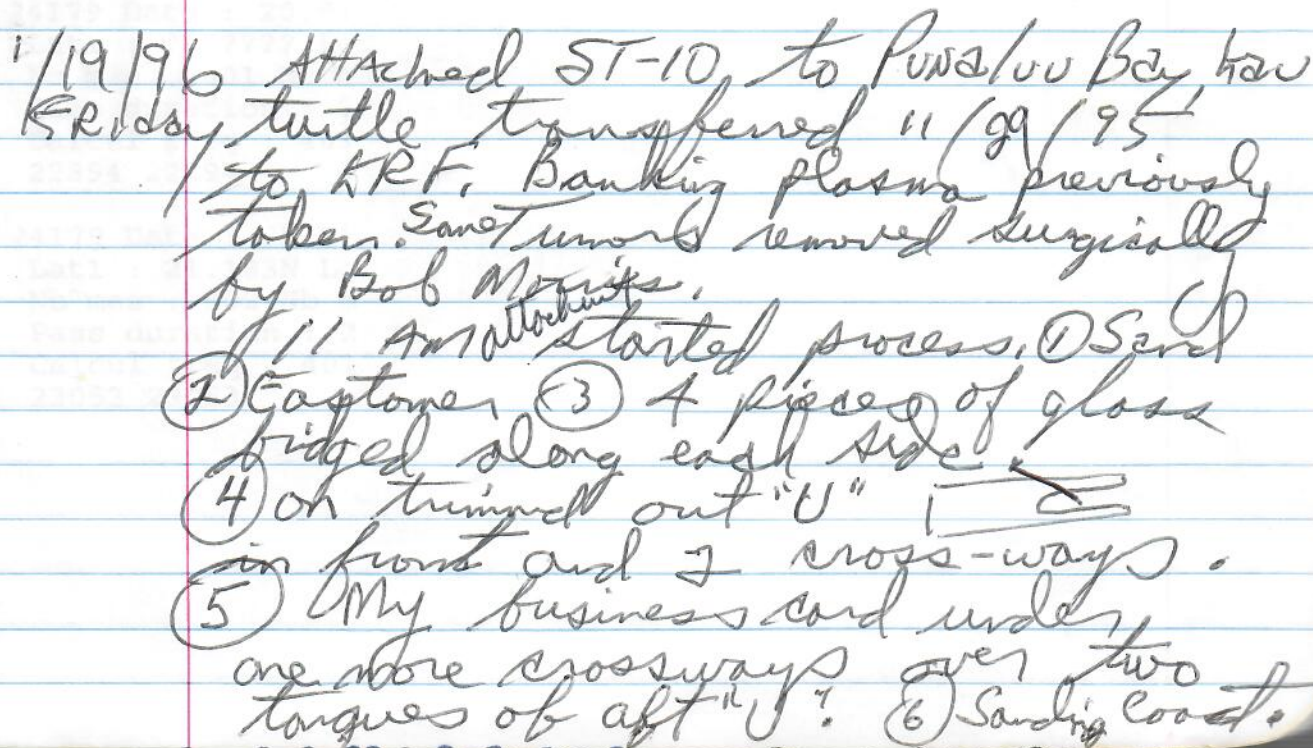 1/19/96 Attached ST-10, to Punaluu Bay, Kau
Friday turtle transferred 11/29/95
to KRF. Banking plasma previously
taken. Some Tumors removed surgically
by Bob Morris.
11 AM attachment started process. ① Sand
② Eastomer ③ 4 pieces of glass
bridged along each side.
④ on trimmed out "U"
in front and 2 cross-ways.
⑤ My business card under,
one more crossways over two
tongues of aft "U". ⑥ Sanding Coat.